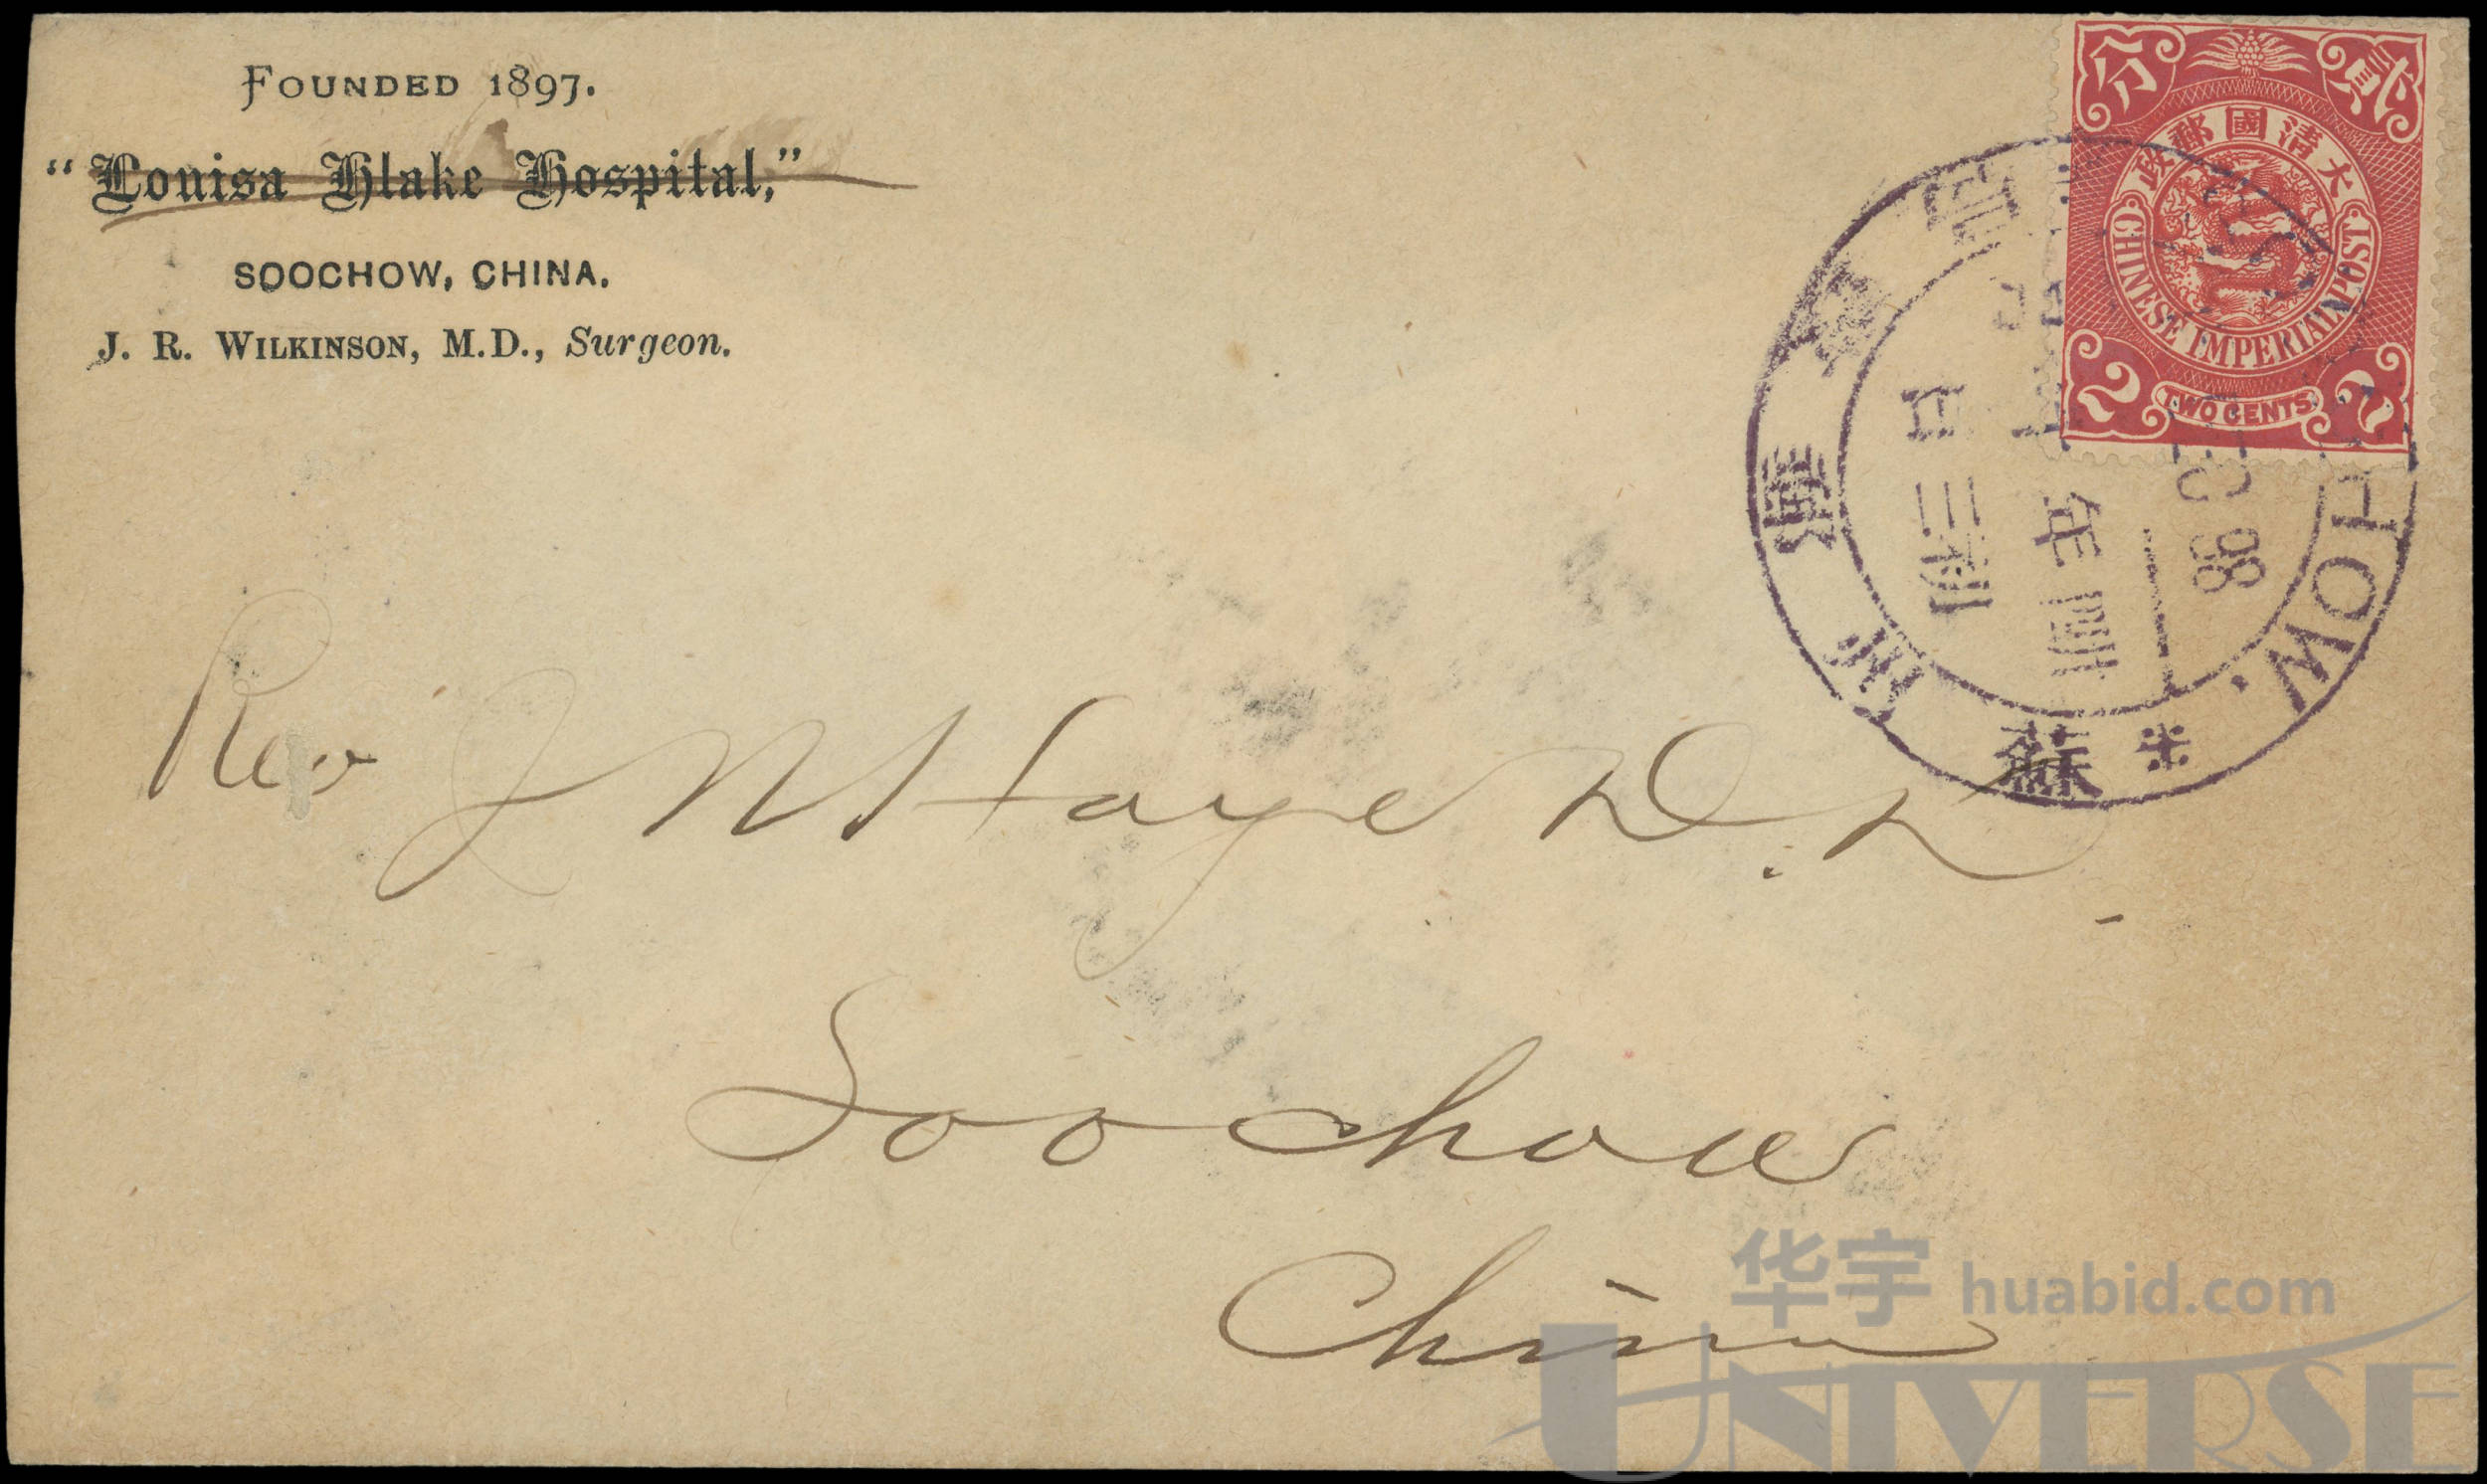 FOUNDED 1897.
“Louisa Blake Hospital,”
SOOCHOW, CHINA.
J. R. WILKINSON, M.D., Surgeon.
分 貳
大清國郵政
CHINESE IMPERIAL POST
2 TWO CENTS 2
HOW.
98
年四
日三初
蘇州
Rev J W Hayes D.D.
Soochow
China
华宇 huabid.com
UNIVERSE